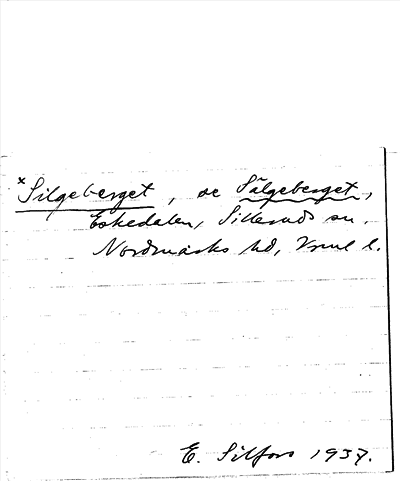 *Silgeberget, se Sälgeberget,
Eskedalen, Silleruds sn,
Nordmarks hd, Vrml l.
E. Silfors 1937.